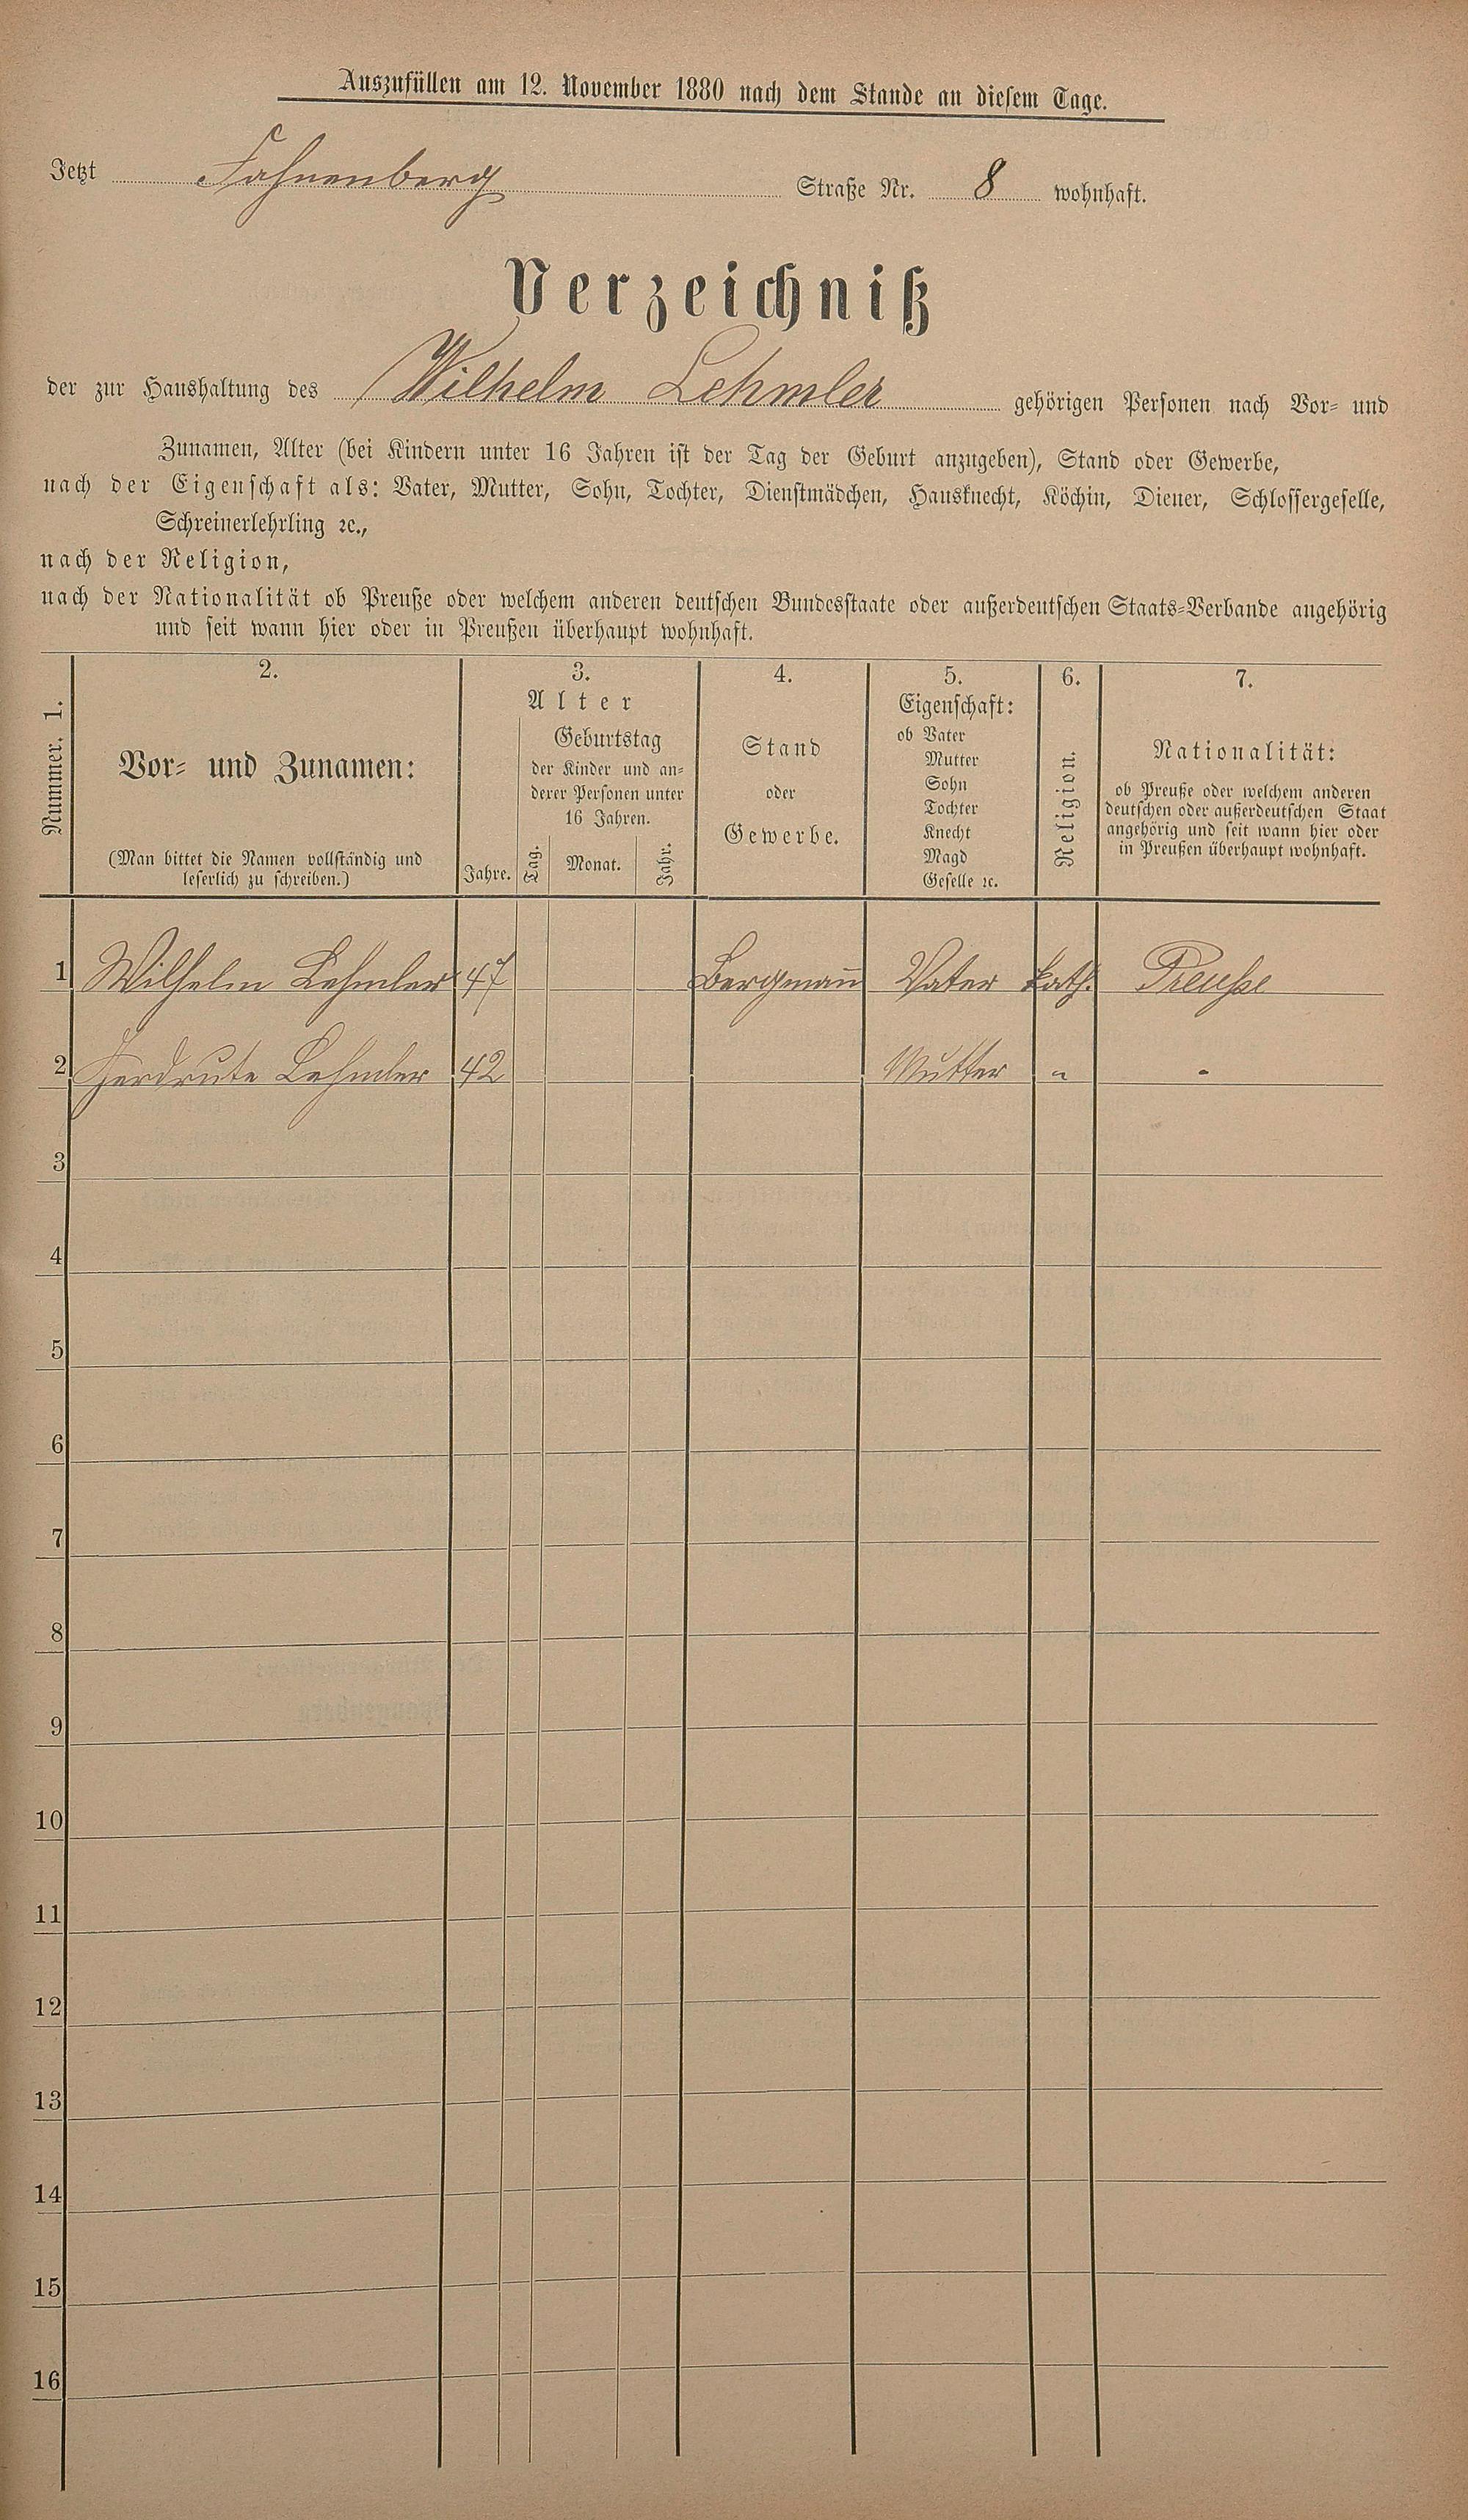 Auszufüllen am 12. November 1880 nach dem Stande an diesem Tage.
Jetzt Fahnenberg Straße Nr. 8 wohnhaft.
Verzeichniß
der zur Haushaltung des Wilhelm Lehmler gehörigen Personen nach Vor- und
Zunamen, Alter (bei Kindern unter 16 Jahren ist der Tag der Geburt anzugeben), Stand oder Gewerbe,
nach der Eigenschaft als: Vater, Mutter, Sohn, Tochter, Dienstmädchen, Hausknecht, Köchin, Diener, Schlossergeselle,
Schreinerlehrling ꝛc.,
nach der Religion,
nach der Nationalität ob Preuße oder welchem anderen deutschen Bundesstaate oder außerdeutschen Staats-Verbande angehörig
und seit wann hier oder in Preußen überhaupt wohnhaft.
Nummer. 1.
2.
Vor- und Zunamen:
(Man bittet die Namen vollständig und
leserlich zu schreiben.)
3.
Alter
Geburtstag
der Kinder und an-
derer Personen unter
16 Jahren.
Jahre. Tag. Monat. Jahr.
4.
Stand
oder
Gewerbe.
5.
Eigenschaft:
ob Vater
Mutter
Sohn
Tochter
Knecht
Magd
Geselle ꝛc.
6.
Religion.
7.
Nationalität:
ob Preuße oder welchem anderen
deutschen oder außerdeutschen Staat
angehörig und seit wann hier oder
in Preußen überhaupt wohnhaft.
1 Wilhelm Lehmler 47 Bergman̄ Vater kath. Preuße
2 Gerdrute Lehmler 42 Mutter " "
3
4
5
6
7
8
9
10
11
12
13
14
15
16